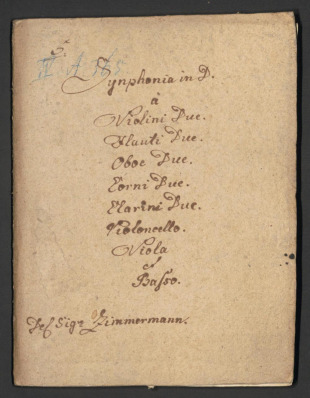 Synphonia in D.
à
Violini Due.
Flauti Due.
Oboe Due.
Corni Due.
Clarini Due.
Violoncello.
Viola
è
Basso.
Del Sigr Zimmermann.